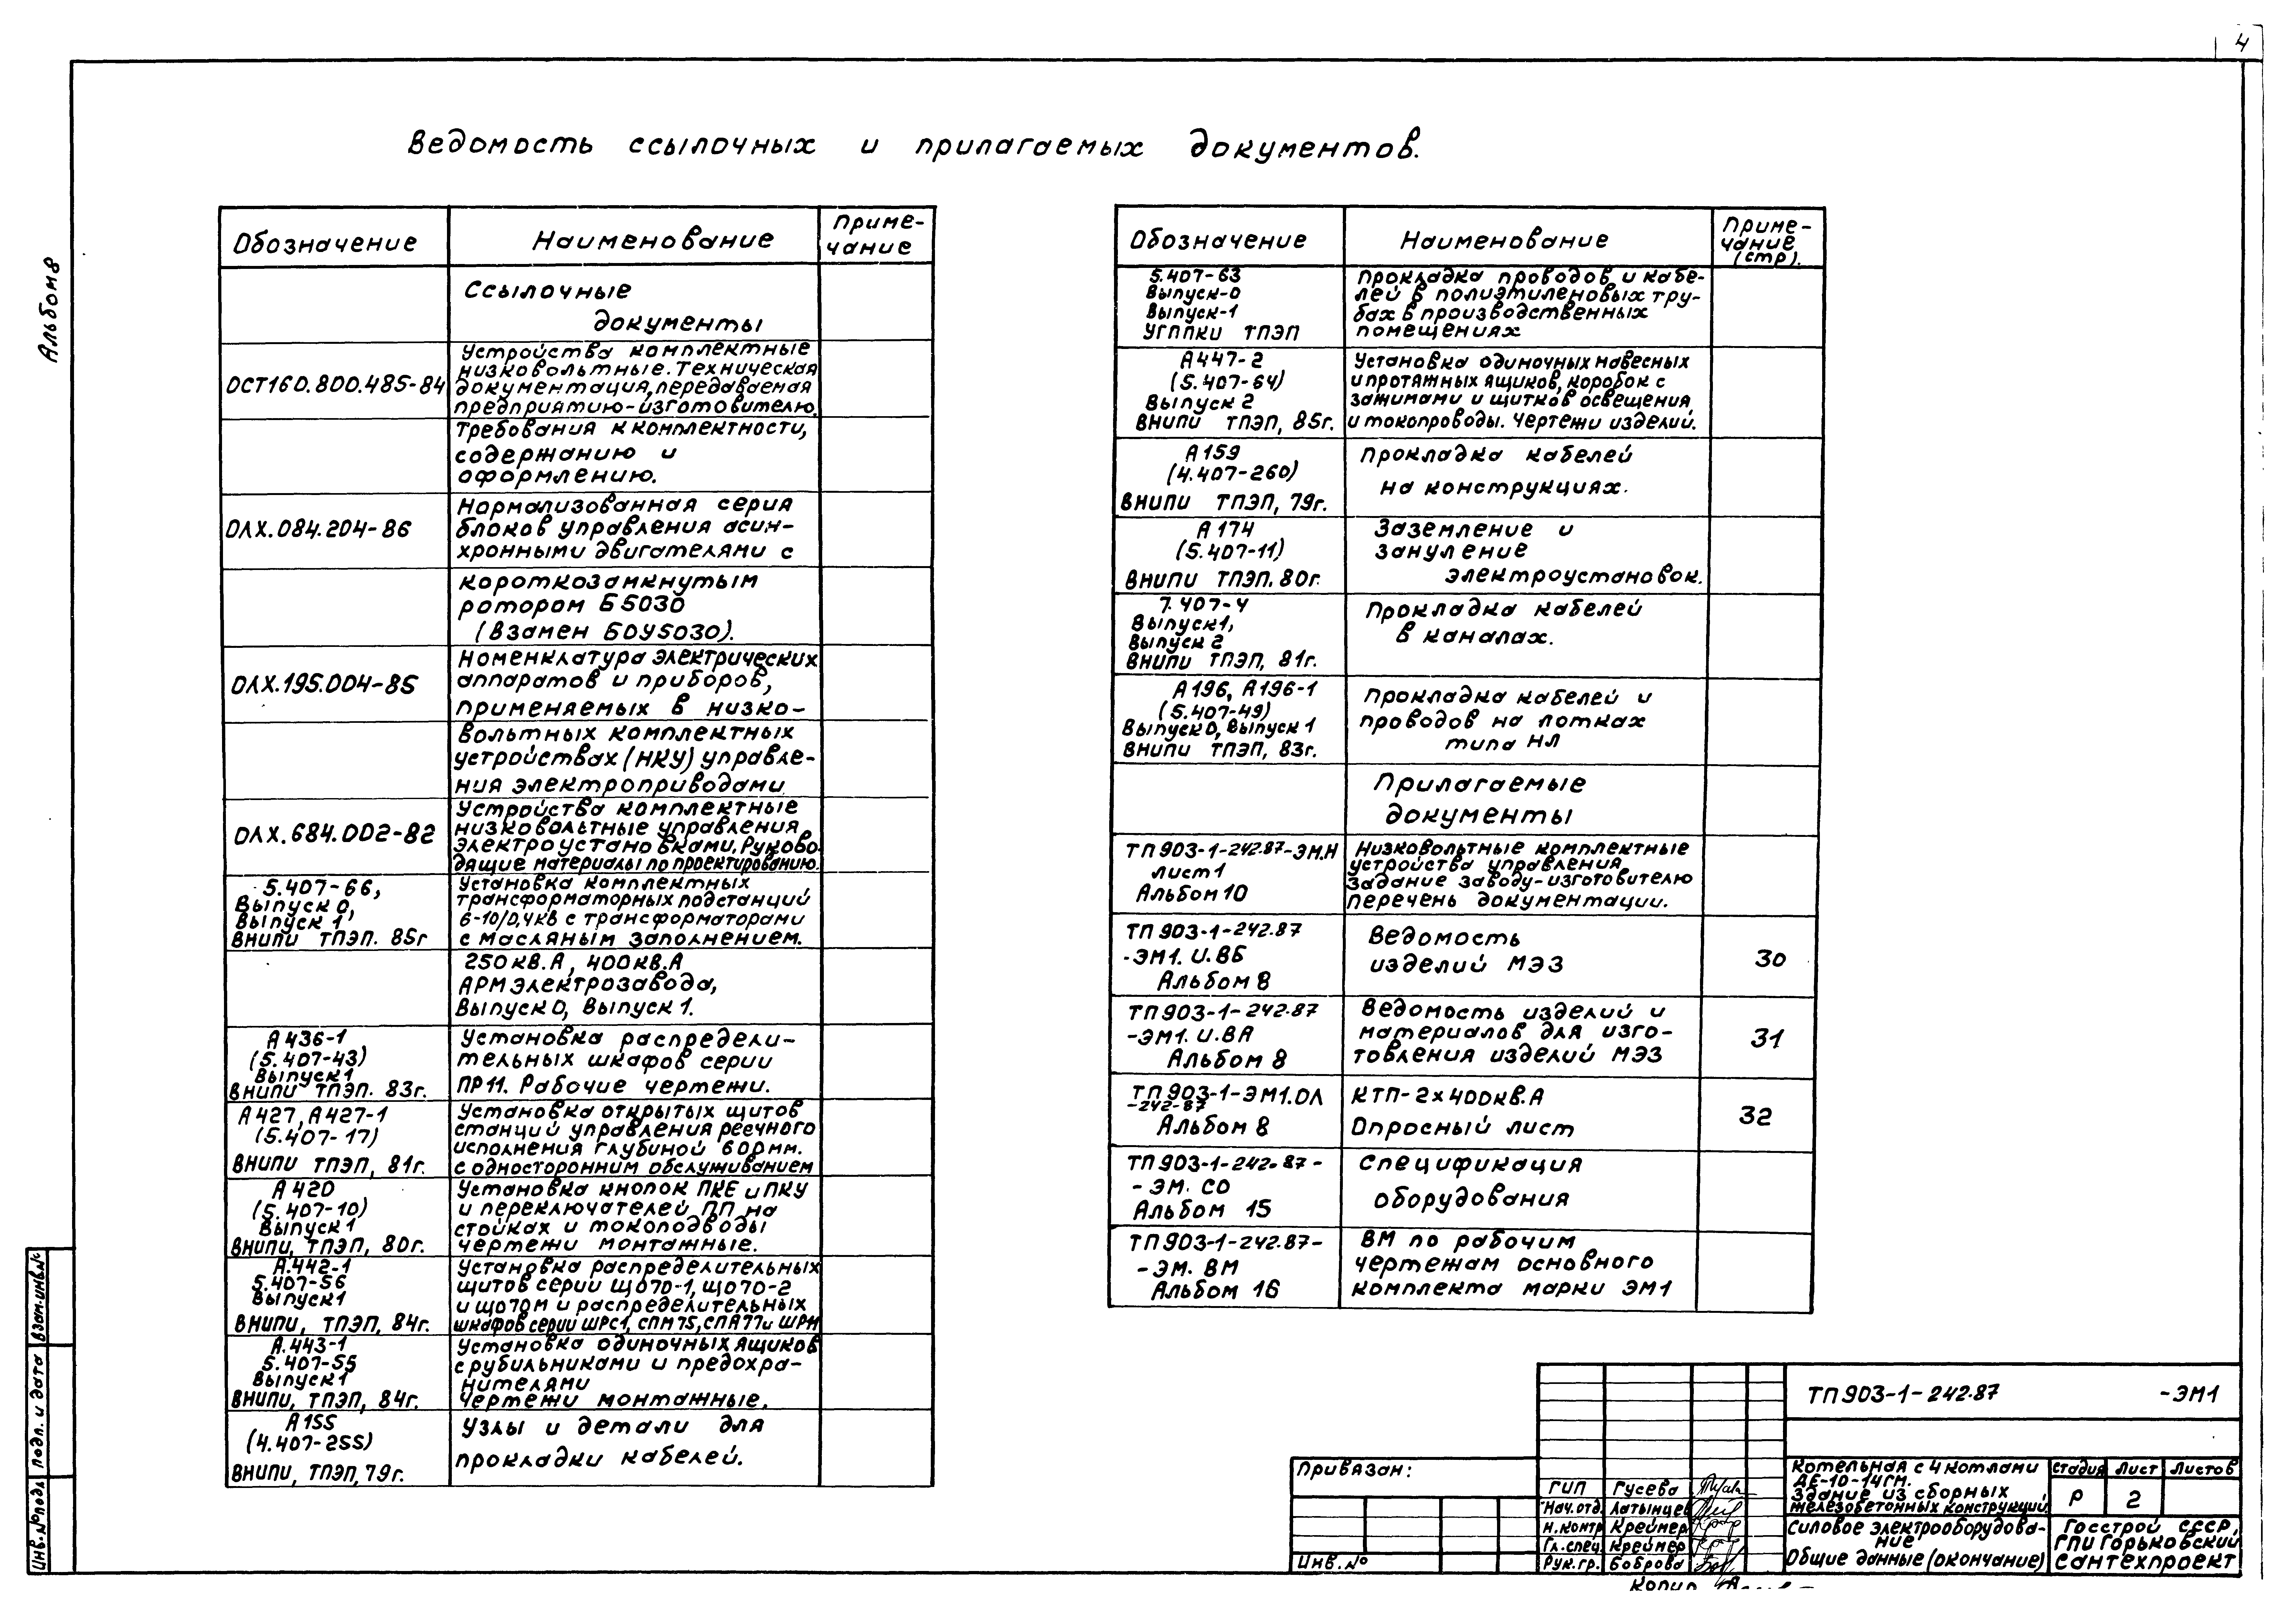 4
Альбом 8
Ведомость ссылочных и прилагаемых документов.
Обозначение
Наименование
Приме-
чание
Ссылочные
документы
ОСТ160.800.485-84
Устройства комплектные
низковольтные. Техническая
документация, передаваемая
предприятию-изготовителю.
Требования к комплектности,
содержанию и
оформлению.
ОЛХ.084.204-86
Нормализованная серия
блоков управления асин-
хронными двигателями с
короткозамкнутым
ротором Б5030
(взамен БОУ5030).
ОЛХ.195.004-85
Номенклатура электрических
аппаратов и приборов,
применяемых в низко-
вольтных комплектных
устройствах (НКУ) управле-
ния электроприводами
ОЛХ.684.002-82
Устройства комплектные
низковольтные управления
электроустановками. Руково-
дящие материалы по проектированию.
5.407-66,
Выпуск 0,
Выпуск 1,
ВНИПИ ТПЭП. 85г
Установка комплектных
трансформаторных подстанций
6-10/0,4кв с трансформаторами
с масляным заполнением.
250кв.А, 400кв.А
АРМэлектрозавода,
Выпуск 0, Выпуск 1.
А436-1
(5.407-43)
Выпуск 1
ВНИПИ ТПЭП. 83г.
Установка распредели-
тельных шкафов серии
ПР11. Рабочие чертежи.
А427, А427-1
(5.407-17)
ВНИПИ ТПЭП, 81г.
Установка открытых щитов
станций управления реечного
исполнения глубиной 600мм.
с односторонним обслуживанием
А420
(5.407-10)
Выпуск 1
ВНИПИ, ТПЭП, 80г.
Установка кнопок ПКЕ и ПКУ
и переключателей ПП на
стойках и токоподводы
чертежи монтажные.
А.442-1
5.407-56
Выпуск 1
ВНИПИ, ТПЭП, 84г.
Установка распределительных
щитов серии ЩО70-1, ЩО70-2
и ЩО70М и распределительных
шкафов серии ШРС1, СПМ75, СПА77 и ШР11
А.443-1
5.407-55
Выпуск 1
ВНИПИ, ТПЭП, 84г.
Установка одиночных ящиков
с рубильниками и предохра-
нителями
Чертежи монтажные.
А155
(4.407-255)
ВНИПИ, ТПЭП, 79г.
Узлы и детали для
прокладки кабелей.
Обозначение
Наименование
Приме-
чание
(стр).
5.407-63
Выпуск-0
Выпуск-1
УГППКИ ТПЭП
Прокладка проводов и кабе-
лей в полиэтиленовых тру-
бах в производственных
помещениях
А447-2
(5.407-64)
Выпуск 2
ВНИПИ ТПЭП, 85г.
Установка одиночных навесных
и протяжных ящиков, коробок с
зажимами и щитков освещения
и токопроводы. Чертежи изделий.
А159
(4.407-260)
ВНИПИ ТПЭП, 79г.
Прокладка кабелей
на конструкциях.
А174
(5.407-11)
ВНИПИ ТПЭП. 80г.
Заземление и
зануление
электроустановок.
7.407-4
Выпуск 1,
Выпуск 2
ВНИПИ ТПЭП, 81г.
Прокладка кабелей
в каналах.
А196, А196-1
(5.407-49)
Выпуск 0, Выпуск 1
ВНИПИ ТПЭП, 83г.
Прокладка кабелей и
проводов на лотках
типа НЛ
Прилагаемые
документы
ТП903-1-242.87-ЭМ.Н
Лист 1
Альбом 10
Низковольтные комплектные
устройства управления
Задание заводу-изготовителю
перечень документации.
ТП903-1-242.87
-ЭМ1.И.ВБ
Альбом 8
Ведомость
изделий МЭЗ
30
ТП903-1-242.87
-ЭМ1.И.ВА
Альбом 8
Ведомость изделий и
материалов для изго-
товления изделий МЭЗ
31
ТП903-1-ЭМ1.ОЛ
-242-87
Альбом 8
КТП-2х400кв.А
Опросный лист
32
ТП903-1-242.87-
-ЭМ. СО
Альбом 15
Спецификация
оборудования
ТП903-1-242.87-
-ЭМ. ВМ
Альбом 16
ВМ по рабочим
чертежам основного
комплекта марки ЭМ1
Взам.инв.№
Подп. и дата
Инв.№подл
Привязан:
Инв.№
ГИП Гусева
Нач.отд. Латынцев
Н.контр Креймер
Гл.спец. Креймер
Рук.гр. Боброва
ТП903-1-242.87 -ЭМ1
Котельная с 4 котлами
ДЕ-10-14ГМ.
Здание из сборных
железобетонных конструкций.
Стадия Лист Листов
Р 2
Силовое электрооборудова-
ние
Общие данные (окончание)
Госстрой СССР,
ГПИ Горьковский
Сантехпроект
Копир.